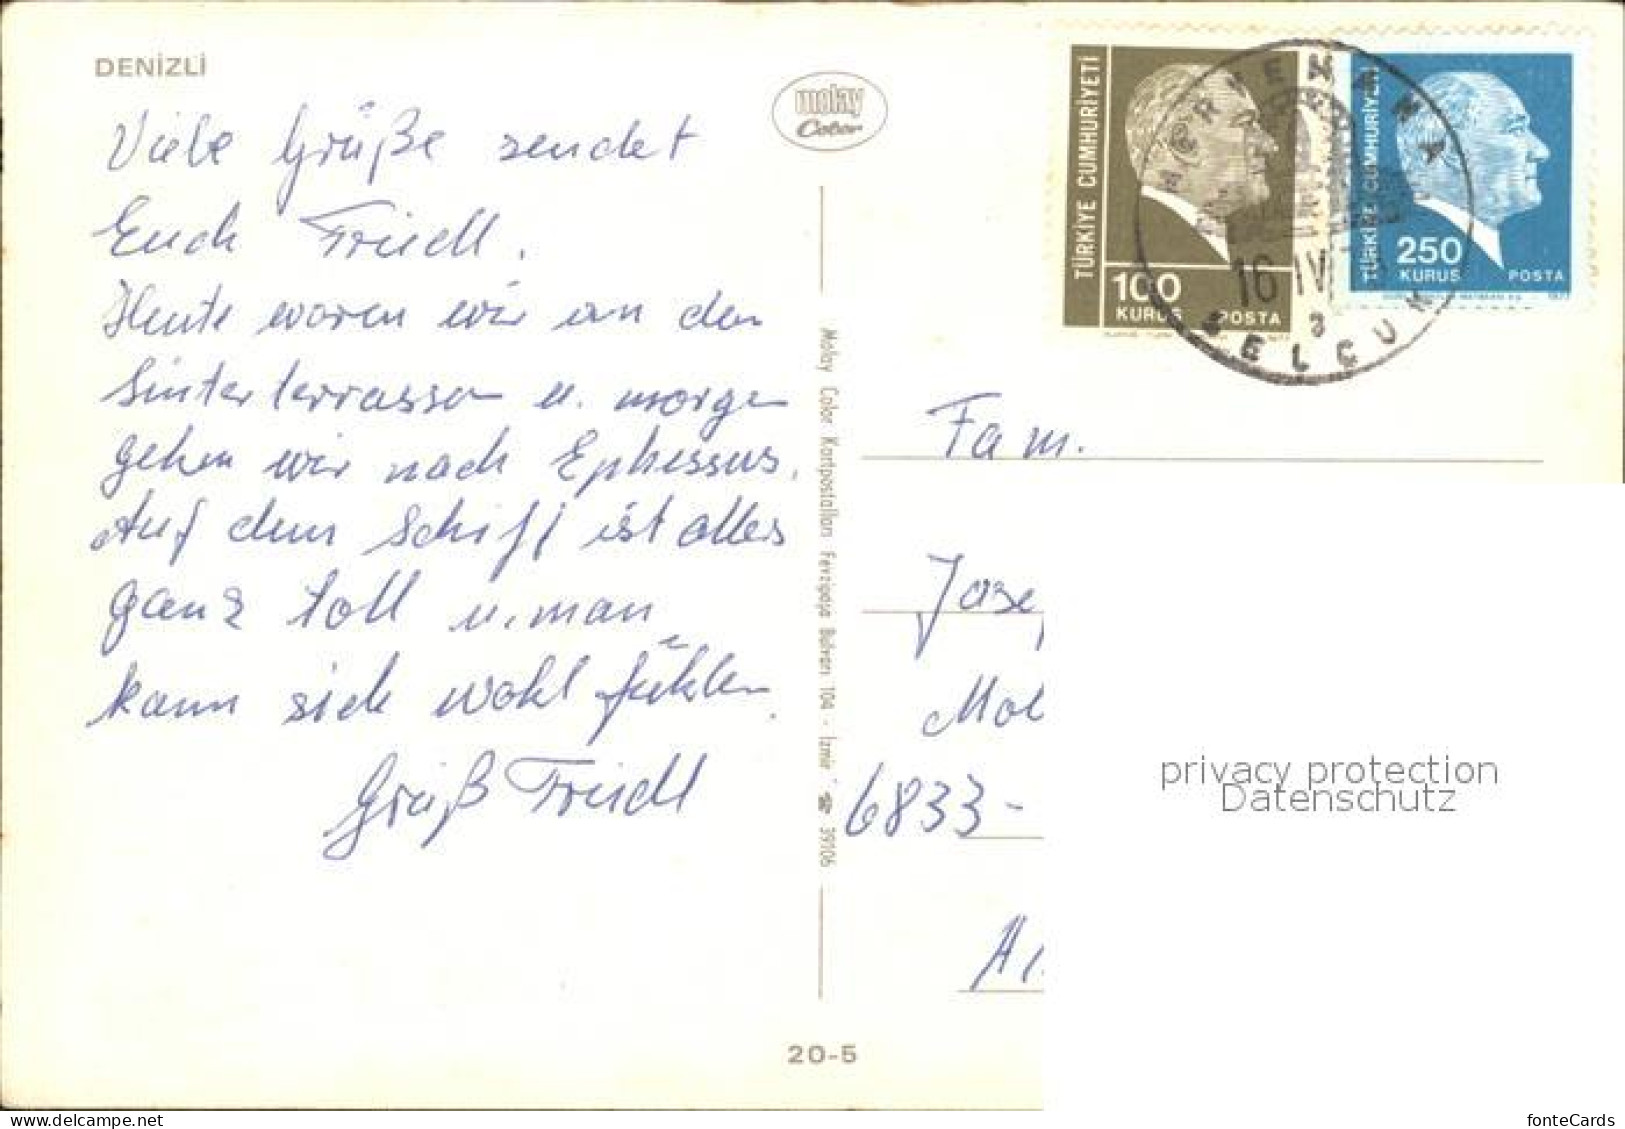 DENİZLİ
Viele Grüße sendet
Euch Friedl.
Heute waren wir an den
Sinterterrassen u. morgen
gehen wir nach Ephessus.
Auf dem Schiff ist alles
ganz toll u. man
kann sich wohl fühlen.
Gruß Friedl
molay
Color
Molay Color Kartpostalları Fevzipaşa Bulvarı 104 - İzmir 39106
20-5
TÜRKİYE CUMHURİYETİ
100
KURUŞ POSTA
TÜRKİYE CUMHURİYETİ
250
KURUŞ POSTA
MERYEMANA
16 IV
SELÇUK
Fam.
Jose
Mol
6833-
privacy protection
Datenschutz
delcampe.net
fonteCards